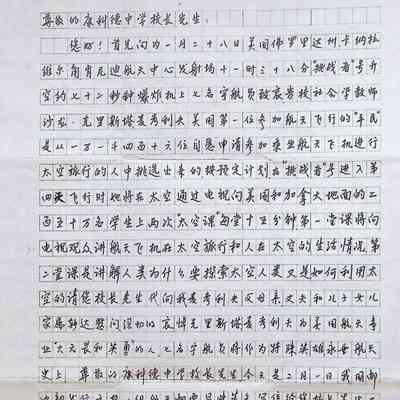 尊敬的康科德中学校长先生:
您好!首先向为一月二十八日美国佛罗里达州卡纳拉
维尔角肯尼迪航天中心发射场十一时三十八分"挑战者"号升
空约七十二秒钟爆炸机上七名宇航员致哀贵校社会学教师
沙 · 克里斯塔麦考利夫美国第一位参加航天飞行的"平民"
是从一万一千四百十六位自愿申请参加乘坐航天飞机进行
太空旅行的人中挑选出来的按预定计划在"挑战者"号进入第
四天飞行时她将在太空通过电视向美国和加拿大地面的二
百五十万名学生上两次"太空课"每堂十五分钟第一堂课将向
电视观众讲航天飞机在太空旅行和人在太空的生活情况第
二堂课是讲解人类为什么要探索太空人类又是如何利用太
空的请您校长先生代向我麦考利夫父母亲丈夫和儿子女儿
家属转达慰问深切的哀悼克里斯塔麦考利夫为美国航天事
业"大无畏和英勇"的人七名宇航员将作为特殊英雄永垂航天
史上。尊敬的康科德中学校长先生今天是二月一日我国邮